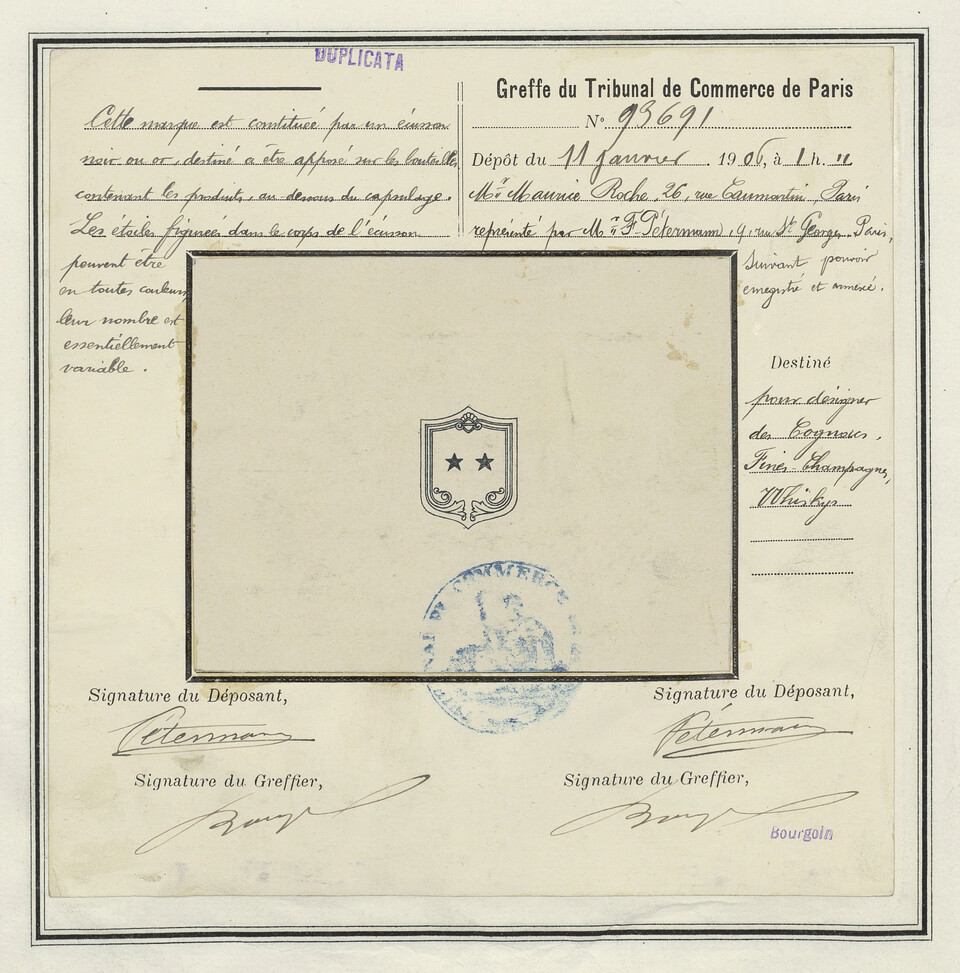 DUPLICATA
Cette marque est constituée par un écusson
noir ou or, destiné à être apposé sur les bouteilles
contenant les produits, au dessous du capsulage.
Les étoiles figurées dans le corps de l'écusson
peuvent être
en toutes couleurs,
leur nombre est
essentiellement
variable.
Greffe du Tribunal de Commerce de Paris
N° 93691
Dépôt du 11 janvier 1906, à 1 h. "
Mr Maurice Roche, 26, rue Caumartin, Paris
représenté par Mr F. Pétermann, 9, rue St Georges, Paris,
suivant pouvoir
enregistré et annexé.
Destiné
pour désigner
des Cognacs,
Fines-Champagnes,
Whiskys
DE COMMERCE
Signature du Déposant,
Pétermann
Signature du Greffier,
Signature du Déposant,
Pétermann
Signature du Greffier,
Bourgoin